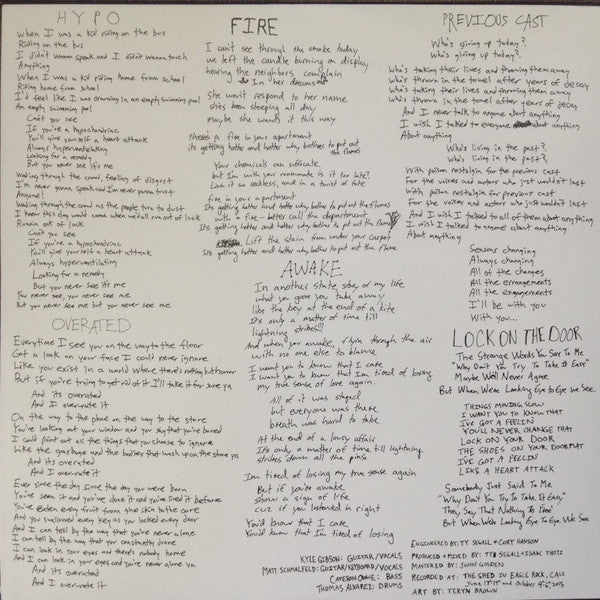 HYPO
When I was a kid riding on the bus
Riding on the bus
I didn't wanna speak and I didn't wanna touch
Anything
When I was a kid riding home from school
Riding home from school
I'd feel like I was drowning in an empty swimming pool
An empty swimming pool
Can't you see
If you're a hypochondriac
You'll give yourself a heart attack
Always hyperventilating
Looking for a remedy
But you never see it's me
Wading through the crowd, feeling of disgust
I'm never gonna speak and I'm never gonna trust
Anyone!
Wading through the crowd as the people turn to dust
I knew this day would come when we'd all run out of luck
Runnin out of luck
Can't you see
If you're a hypochondriac
You'll give yourself a heart attack
Always hyperventilating
Looking for a remedy
But you never see it's me
You never see, you never see me
But you never see me but you never see me
OVERATED
Everytime I see you on the way to the floor
Got a look on your face I could never ignore
Like you exist in a world where there's nothing but horror
But if you're trying to get rid of it I'll take it for sure ya
And its overated
And I overrate it
On the way to the place on the way to the store
You're looking out your window and you say that you're bored
I could point out all the things that you choose to ignore
Like the garbage and the bodies that wash up on the shore ya
And its overated
And I overrate it
Ever since the day since the day you were born
You've seen it and you've done it and you've lived it before
You've eaten every fruit from the skin to the core
And you swallowed every key as you locked every door
And I can tell by the way that you're never alone
I can tell by the way that you constantly drone
I can look in your eyes and there's nobody home
And I can look in your eyes and you're never alone ya
And its overated
And I overrate it
FIRE
I can't see through the smoke today
we left the candle burning on display
hearing the neighbors complain
In her dreams
She won't respond to her name
she's been sleeping all day
maybe she wants it this way
there's a fire in your apartment
its getting hotter and hotter why bother to put out the flames
Your chemicals can suffocate
but Im with your roommate is it too late?
Live it so reckless, and in a twist of fate
fire in your apartment
It's getting hotter and hotter why bother to put out the flames
with a fire - better call the department
It's getting hotter and hotter why bother to put out the flames
Lift the stain from under your carpet
It's getting hotter and hotter why bother to put out the flame
AWAKE
In another state stay of my life
what you gave you take away
like the key at the end of a kite
It's only a matter of time till
lightning strikes!!!
And when you awake, flyin through the air
with no one else to blame
I want you to know that I care
I want you to know Im tired of losing
my true sense of love again
All of it was staged
but everyone was there
breath was hard to take
At the end of a lousy affair
It's only a matter of time till lightning
strikes down all the pins
Im tired of losing my true sense again
But if you're awake
show a sign of life
cuz if you listened in right
You'd know that I care
You'd know that Im tired of losing
KYLE GIBSON: GUITAR/VOCALS
MATT SCHMALFELD: GUITAR/KEYBOARD/VOCALS
CAMERON CROWE: BASS
THOMAS ALVAREZ: DRUMS
PREVIOUS CAST
Who's giving up today?
Who's giving up today?
Who's taking their lives and throwing them away
Who's thrown in the towel after years of decay
Who's taking their lives and throwing them away
Who's thrown in the towel after years of decay
And I never talk to anyone about anything
I wish I talked to everyone about anything
About anything
Who's living in the past?
Who's living in the past?
With poison nostalgia for the previous cast
For the wives and actors who just wouldn't last
With poison nostalgia for previous cast
For the voices and actors who just wouldn't last
And I wish I talked to all of them about anything
I wish I talked to anyone about anything
About anything
Seasons changing
Always changing
All of the changes
All the errangements
All the engagements
I'll be with you
With you...
LOCK ON THE DOOR
The Strange Words You Say To Me
"Why Don't You Try To Take It Easy"
Maybe We'll Never Agree
But When We're Looking Eye to Eye We See
THINGS MOVING SLOW
I WANT YOU TO KNOW THAT
I'VE GOT A FEELIN
YOU'LL NEVER CHANGE THAT
LOCK ON YOUR DOOR
THE SHOES ON YOUR DOORMAT
I'VE GOT A FEELIN
LIKE A HEART ATTACK
Somebody Just Said To Me
"Why Don't You Try To Take It Easy"
They Say That Nothing Is Free
But When We're Looking Eye To Eye We See
ENGINEERED BY: TY SEGALL + CORY HANSON
PRODUCED + MIXED BY: TY SEGALL + ISAAC
MASTERED BY: JOHN GOLDEN
RECORDED AT: THE SHED IN EAGLE ROCK, CALI
June 17th and October 4-6, 2013
ART BY: TERYN BROWN